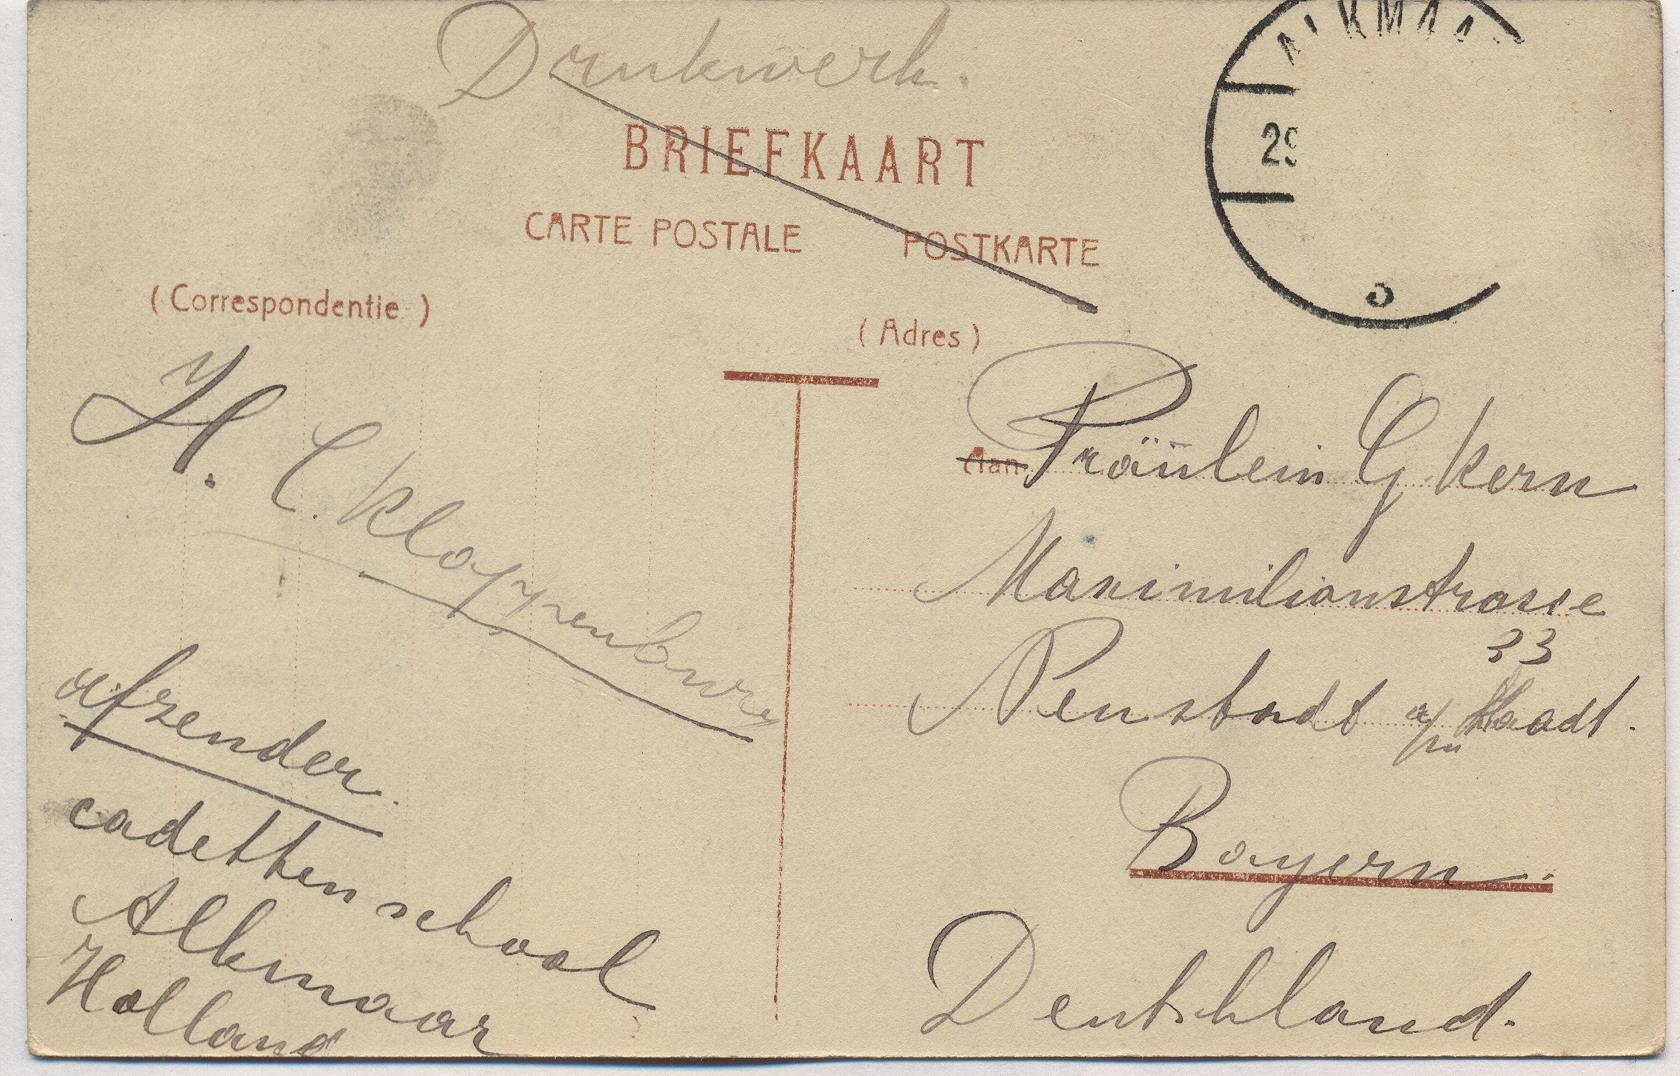 Drukwerk.
BRIEFKAART
CARTE POSTALE POSTKARTE
ALKMAA
29
5
( Correspondentie )
( Adres )
H. C. Kloppenburg
afzender.
cadettenschool
Alkmaar
Holland
Aan
Fräulein G. Kern
Maximilianstrasse
33
Neustadt a/m Haadt.
Bayern.
Deutschland.